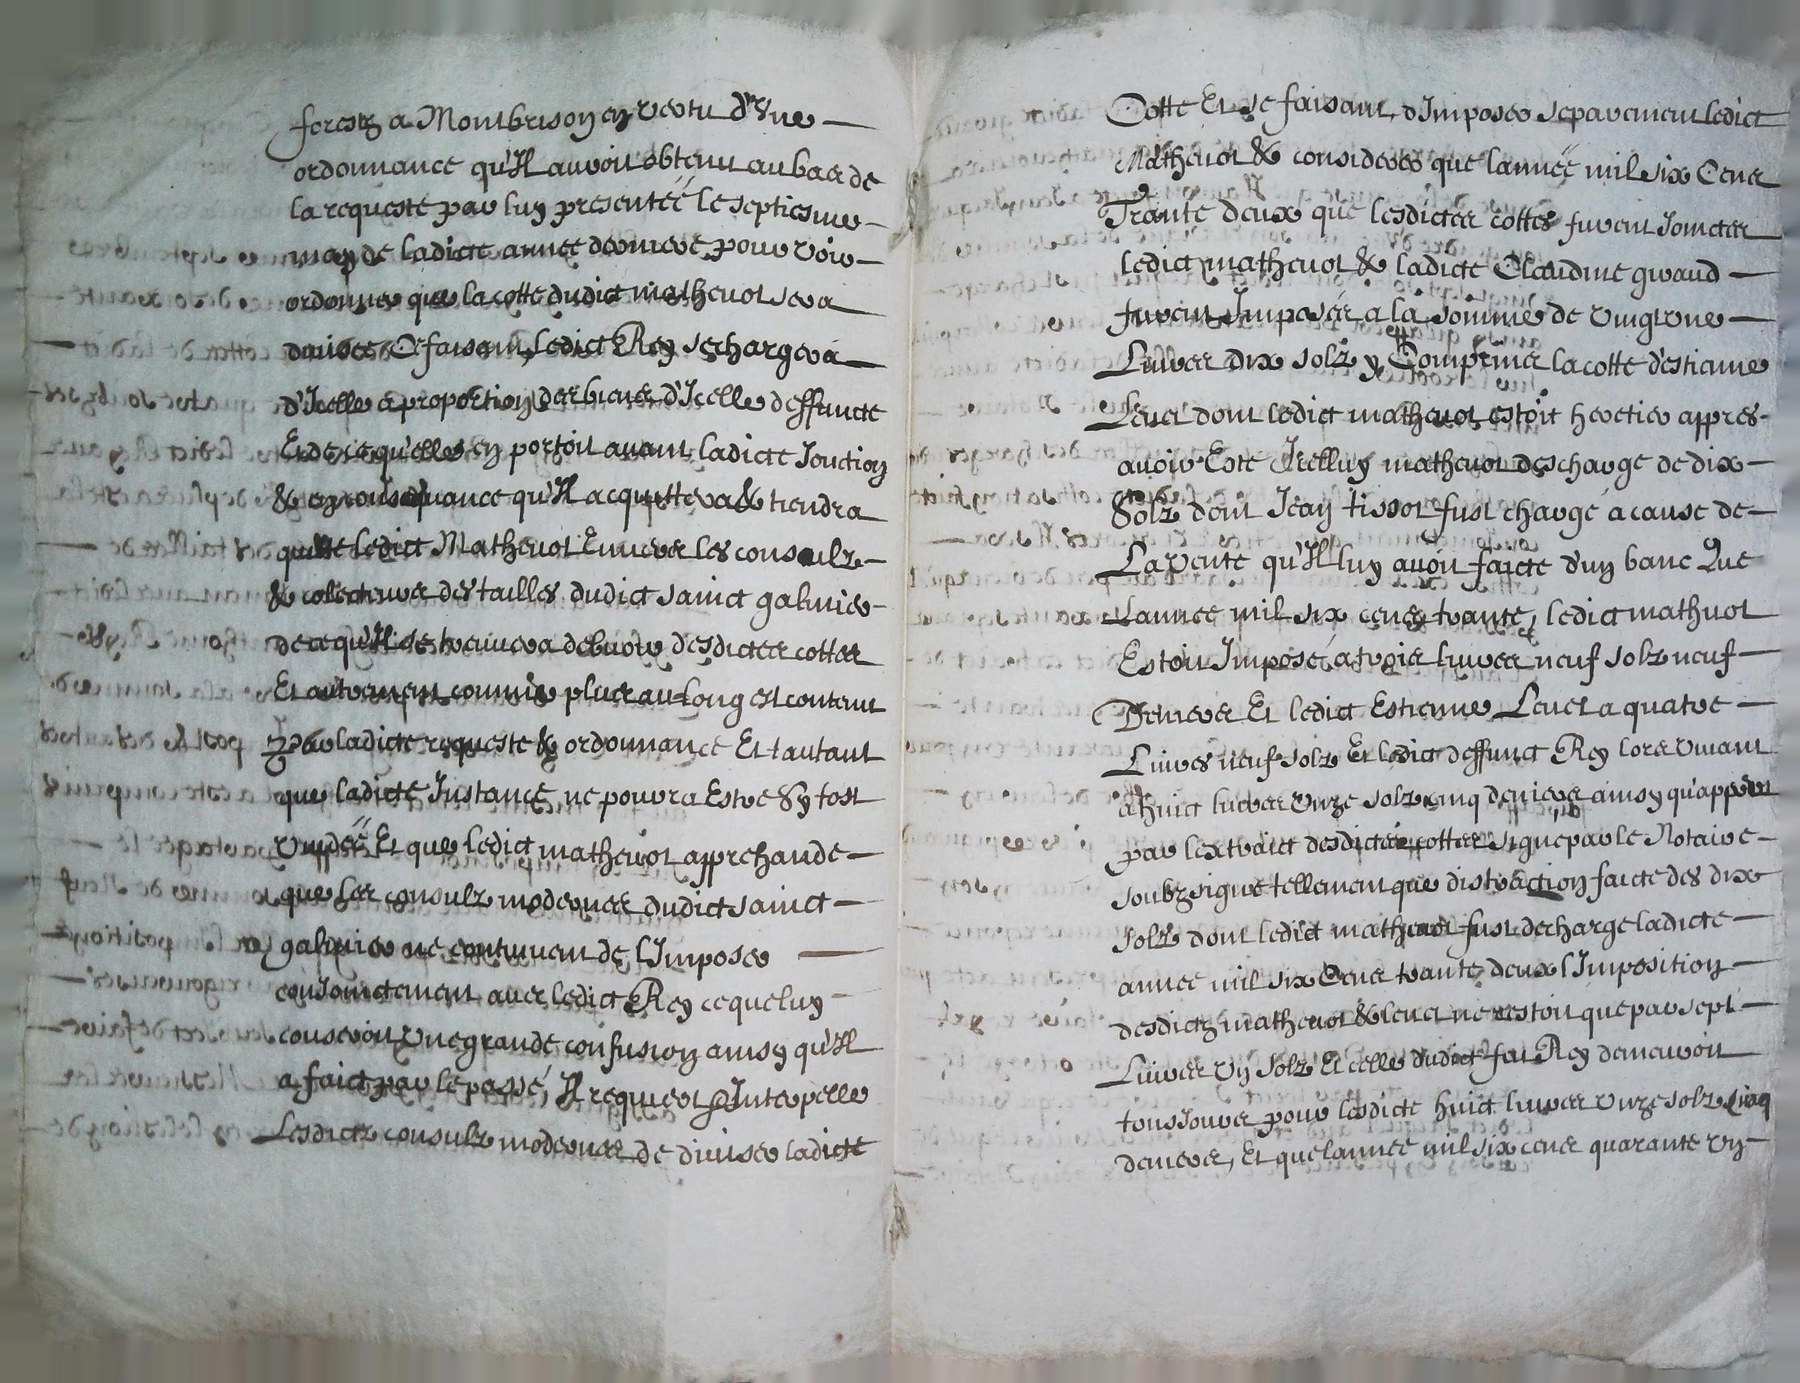 forestz a Montbrison en vertu d'Une
ordonnance qu'Il auroit obtenu au bas de
la requeste par luy presentée le septiesme
may de ladicte annee derniere pour voir
ordonner que la cotte dudict mathenot sera
diuisee Ce faisant, ledict Rey se chargera
d'Icelle a proportion des biens d'Icelle deffuncte
Et de ce qu'elle en portoit auant ladicte Jonction
& en consequance qu'Il acquittera & tiendra
quitte ledict Mathenot Enuers les consulz
& colecteurs des tailles dudict sainct galmier
de ce qu'Il se treuuera debuoir desdictes cottes
Et autrement comme plus au long est contenu
par ladicte requeste & ordonnance Et d'autant
que ladicte Instance ne pourra Estre sy tost
vuidée Et que ledict mathenot apprehande
que les consulz modernes dudict sainct
galmier ne continuent de l'Imposer
conjoinctement auec ledict Rey ce que luy
causeroit Une grande confusion ainsy qu'Il
a faict par le passé, Il requiert & Interpelle
Lesdictz consulz modernes de diuiser ladicte
Cotte Et ce faisant, d'Imposer separement ledict
Mathenot & considerer que lannée mil six Cens
Trante deux que lesdictes cottes furent Joinctes
ledict mathenot & ladicte Claudine giraud
furent Imposés a la somme de vingt une
Liures dix solz y Comprins la cotte d'estienne
Leuet dont ledict mathenot estoit heretier appres
auoir Este Icelluy mathenot deschargé de dix
Solz dont Jean tissot fust chargé a cause de
La Vente qu'Il luy auoit faicte d'un banc Que
Lannee mil six cens trante, ledict mathenot
Estoit Imposé a troies liures neuf solz neuf
Deniers Et ledict Estienne Leuet a quatre
Liures neuf solz Et ledict deffunct Rey lors viuant
a huict liures Unze solz cinq deniers ainsy qu'appert
par lextraict desdictes cottes signé par le Notaire
soubzsigné tellement que distraction faicte des dix
Solz dont ledict mathenot fust decharge ladicte
annee mil six Cens trante deux l'Imposition
desdictz mathenot & leuet ne restoit que par sept
Liures Un Solz Et celle dudict feu Rey demeuroit
tousjours pour lesdicte huict liures Unze solz cinq
deniers, Et que lannee mil six cens quarante un